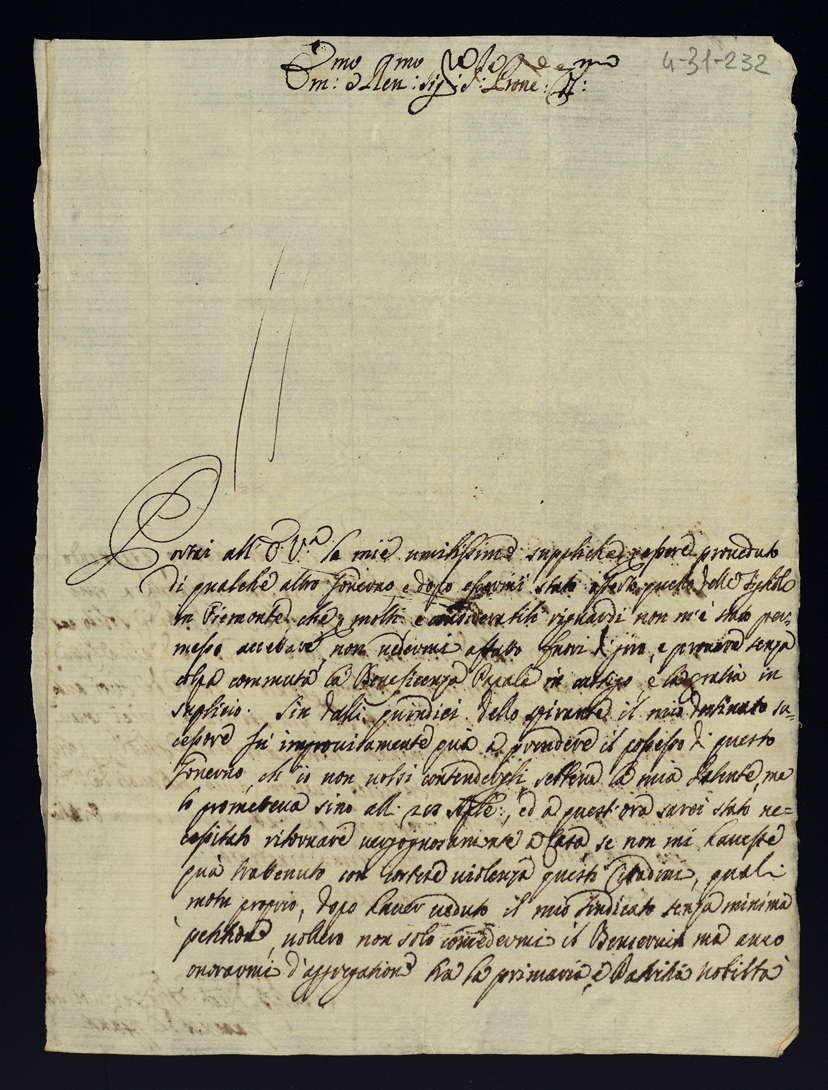 4-31-232
Em:mo e Reu:mo Sig: P:rone
Portai all' E. V.a le mie umilissime suppliche p essere proueduto
di qualche altro Gouerno, e dopo essermi stato offerto quello delle
in Piemonte, che p molti e considerabili riguardi non m'è stato per=
messo accettare, non uedermi affatto fuori di giro, e prouare senza
colpa commutata la Beneficenza Papale in castigo e la gratia in
suplicio. Sin dalli quindici dello spirante il mio destinato su=
cessore fu improuisamente quà à prendere il possesso di questo
Gouerno, ch' io non uolsi contendergli settene la mia Patente, me
lo prometteua sino all' ed a quest' ora sarei stato ne=
cessitato ritornare uergognosamente à Casa se non mi hauesse
quà trattenuto con cortese uiolenza questi Cittadini, quali
motu proprio, dopo hauer ueduto il mio Sindicato senza minima
petitione, uollero non solo concedermi il Benseruito ma anco
onorarmi d'aggregatione tra la primaria, e Patritia Nobiltà